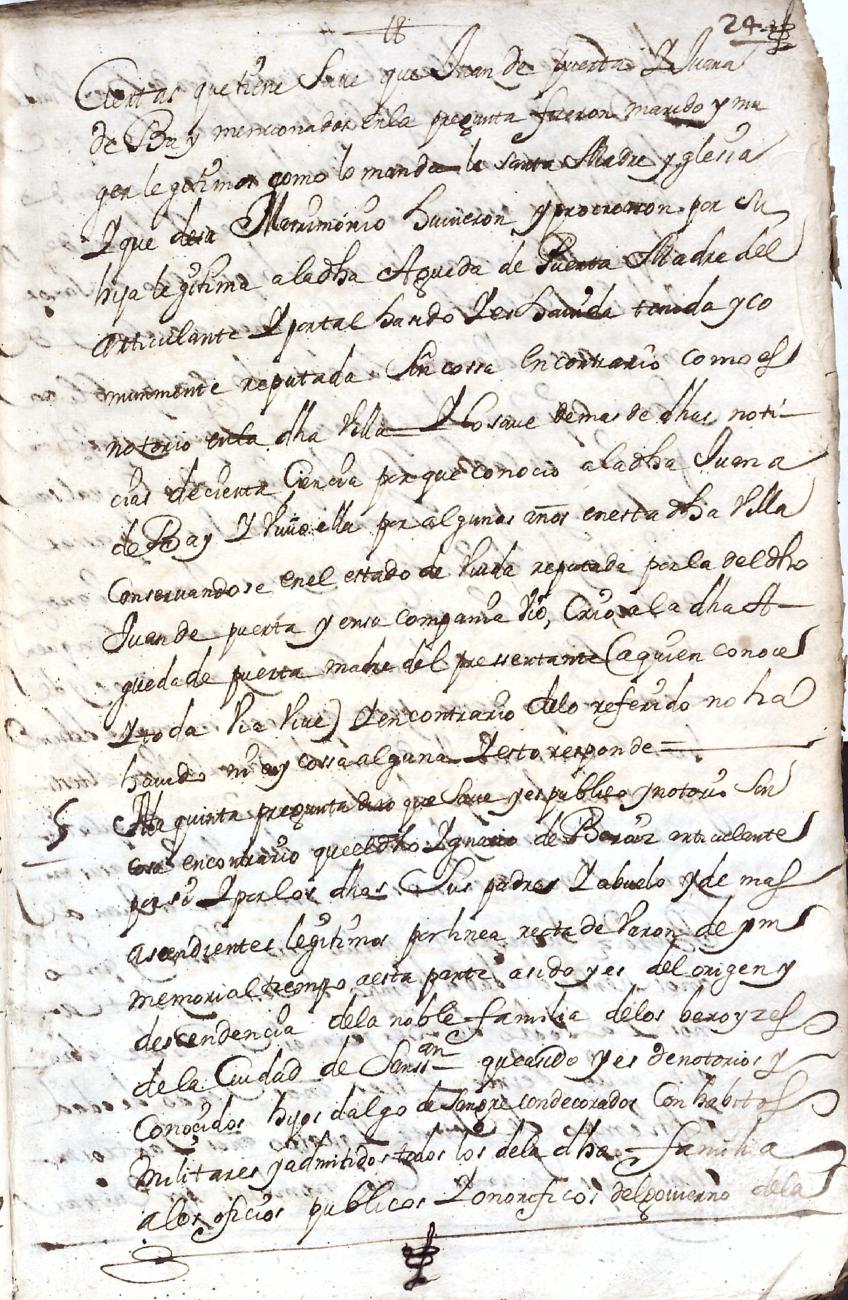 18
24
Ciertas que tiene save que Juan de puerta Y Juana
de Bay mencionados en la pregunta fueron marido y mu
ger legitimos como lo manda la santa Madre yglesia
Y que desu Matrimonio huvieron y procrearon por su
hija legitima a la dha Agueda de Puerta Madre del
articulante Y portal hasido Y es havida tenida y co
munmente reputada sin cossa en contrario como es
notorio en la dha Villa Y lo save demas de dhas noti
cias de cierta Ciencia por que conocio a la dha Juana
de Bay Y vivio ella por algunos años en esta dha Villa
Conservandose en el estado de Viuda reputada por la del dho
Juan de puerta y en su compania vio, Crio a la dha A
gueda de puerta madre del pressentante (a quien conoce
Y toda Via Vive) Y en contrario delo referido no ha
havido ni ay cossa alguna Y esto responde
5 A la quinta pregunta dixo que save y es publico y notorio sin
cosa en contrario que el dho Ygnacio de Beroiz articulante
por si Y por los dhos Sus padres Y abuelo y de mas
ascendientes legitimos por linea recta de Varon de ym
memorial tiempo a esta parte a sido y es del origen y
descendencia de la noble familia delos beroyzes
de la Ciudad de San Ssan que asido y es de notorios y
Conocidos hijos dalgo de sangre condecorados Con habitos
Militares y admitidos todos los dela dha familia
a los oficios publicos Y onorificos del govierno dela